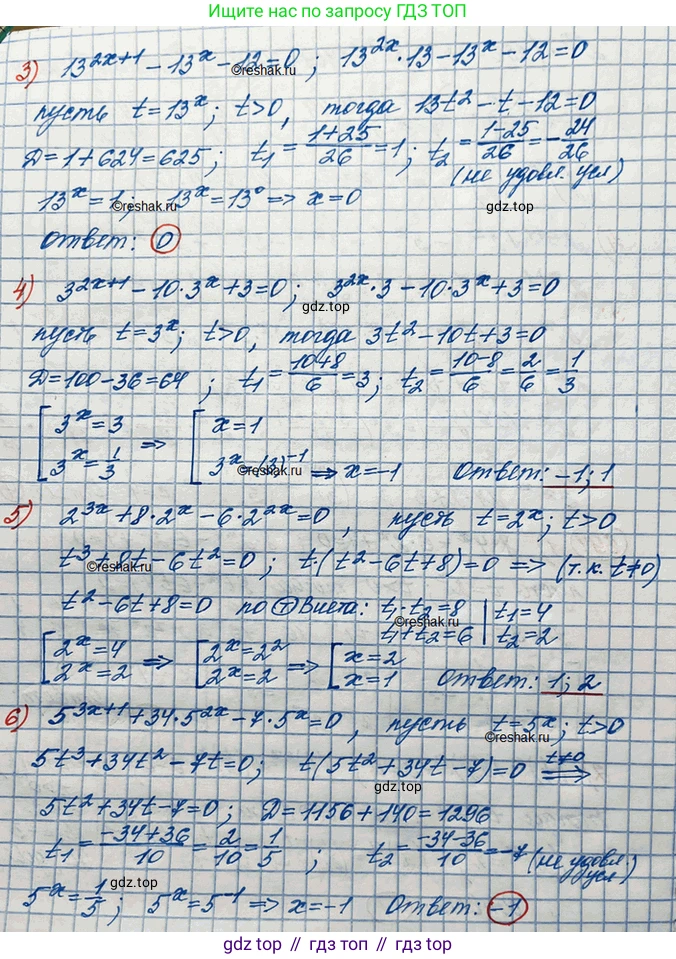 Ищите нас по запросу ГДЗ ТОП
3) 13^(2x+1) - 13^x - 12 = 0 ; 13^(2x) · 13 - 13^x - 12 = 0
©reshak.ru
пусть t = 13^x ; t > 0, тогда 13t² - t - 12 = 0
D = 1 + 624 = 625 ; t₁ = (1+25)/26 = 1 ; t₂ = (1-25)/26 = -24/26
(не удовл. усл)
13^x = 1 ; 13^x = 13⁰ => x = 0
©reshak.ru gdz.top
Ответ: 0
4) 3^(2x+1) - 10 · 3^x + 3 = 0 ; 3^(2x) · 3 - 10 · 3^x + 3 = 0
gdz.top
пусть t = 3^x ; t > 0, тогда 3t² - 10t + 3 = 0
D = 100 - 36 = 64 ; t₁ = (10+8)/6 = 3 ; t₂ = (10-8)/6 = 2/6 = 1/3
[ 3^x = 3 => [ x = 1
3^x = 1/3 3^x = (3)^(-1) => x = -1 Ответ: -1; 1
©reshak.ru
5) 2^(3x) + 8 · 2^x - 6 · 2^(2x) = 0, пусть t = 2^x ; t > 0
t³ + 8t - 6t² = 0 ; t · (t² - 6t + 8) = 0 => (т.к. t ≠ 0)
©reshak.ru
t² - 6t + 8 = 0 по Т Виета: t₁ · t₂ = 8 | t₁ = 4
t₁ + t₂ = 6 | t₂ = 2
©reshak.ru
[ 2^x = 4 => [ 2^x = 2² => [ x = 2
2^x = 2 2^x = 2 x = 1 Ответ: 1; 2
6) 5^(3x+1) + 34 · 5^(2x) - 7 · 5^x = 0, пусть t = 5^x ; t > 0
©reshak.ru
5t³ + 34t² - 7t = 0 ; t(5t² + 34t - 7) = 0 t≠0 =>
gdz.top
5t² + 34t - 7 = 0 ; D = 1156 + 140 = 1296
t₁ = (-34+36)/10 = 2/10 = 1/5 ; t₂ = (-34-36)/10 = -7 (не удовл. усл)
gdz.top
5^x = 1/5 ; 5^x = 5^(-1) => x = -1 Ответ: -1
gdz.top // гдз топ // gdz.top